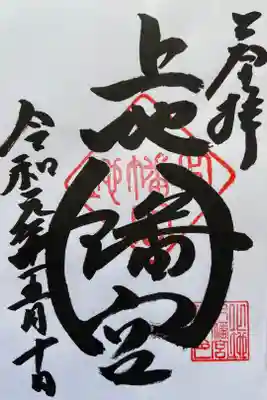 奉拝
上地八幡宮
令和元年五月十日